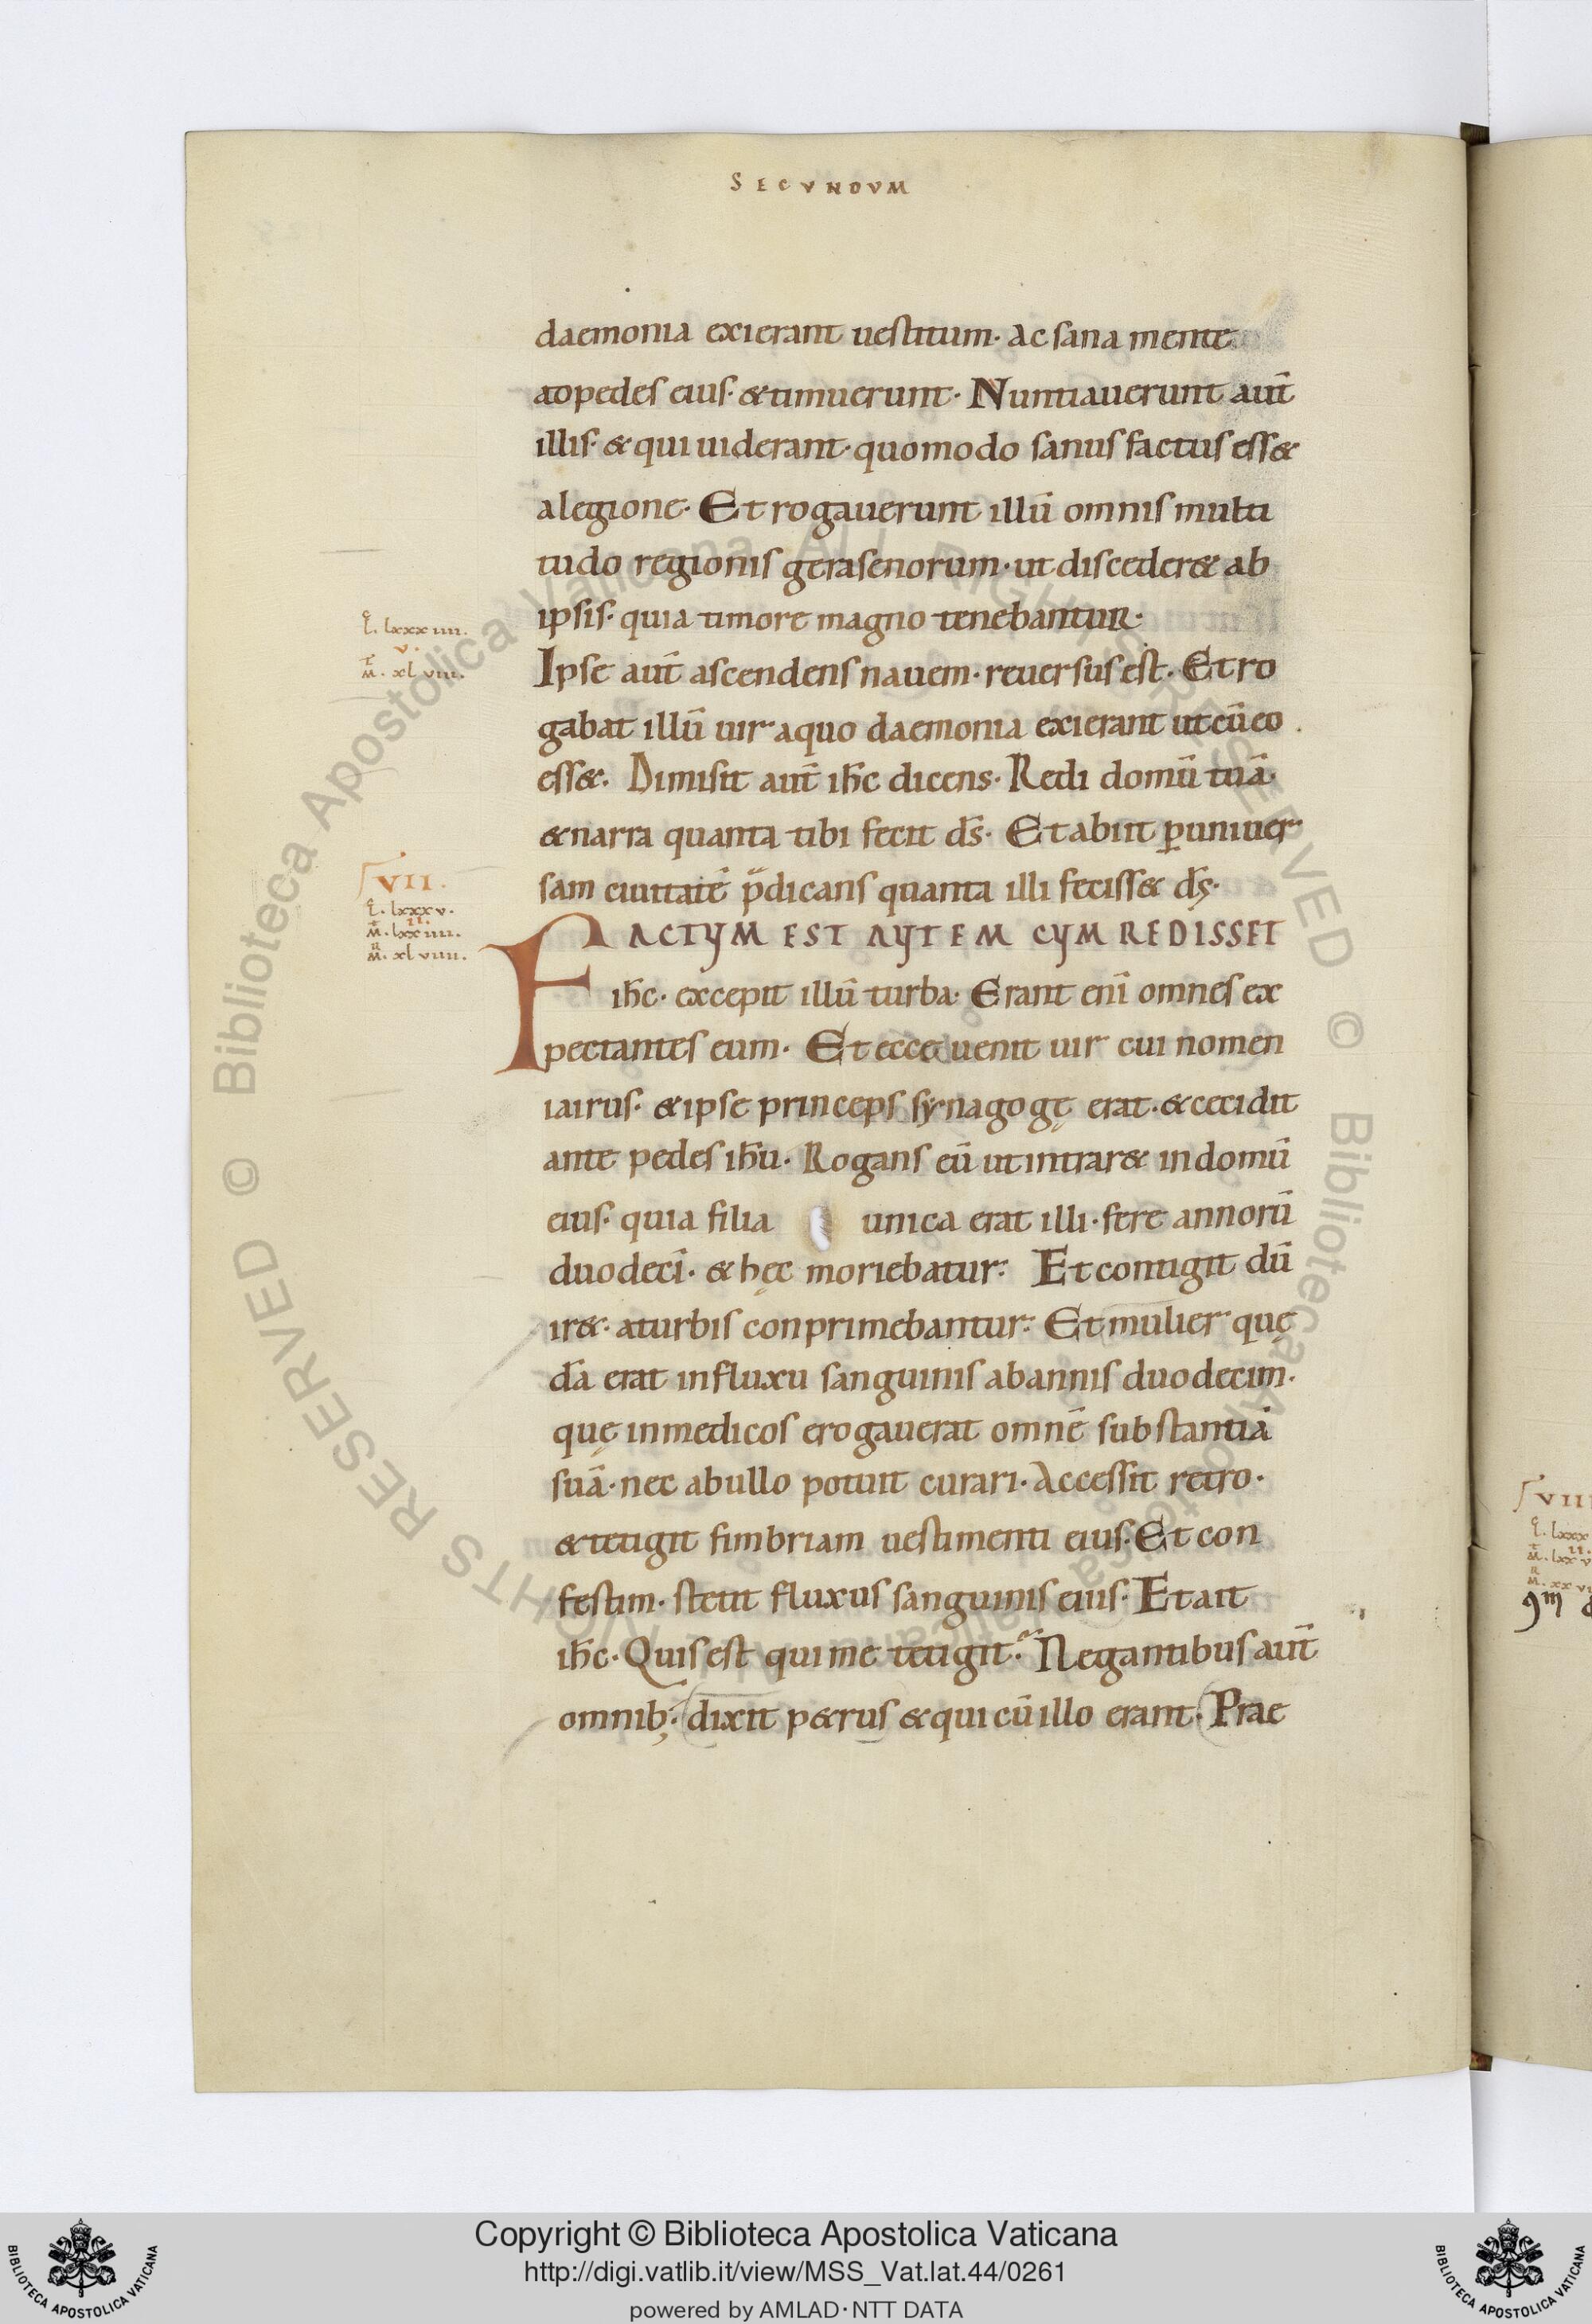 SECVNDVM
daemonia exierant uestitum· ac sana mente
adpedes eius· &timuerunt· Nuntiauerunt aut̄
illis· & qui uiderant· quomodo sanus factus ess&
alegione· Et rogauerunt illū omnis multi
tudo regionis gerasenorum· ut disceder& ab
ipsis· quia timore magno tenebantur·
L̄. lxxxiiii.
v.
M̄. xlviii.
Ipse aut̄ ascendens nauem· reuersus est· Et ro
gabat illū uir aquo daemonia exierant ut cū eo
ess&. Dimisit aut̄ ih̄c dicens· Redi domū tuā·
&narra quanta tibi fecit d̄s· Et abiit ꝑuniuer
sam ciuitatē p̄dicans quanta illi feciss& d̄s·
VII.
L̄. lxxxv.
II.
M̄. lxxiiii.
M̄. xlviiii.
FACTUM EST AUTEM CUM REDISSET
ih̄c· excepit illū turba· Erant eni̅ omnes ex
pectantes eum· Et ecce uenit uir cui nomen
iairus· &ipse princeps synagogę erat· &cecidit
ante pedes ih̄u· Rogans eū ut intrar& in domū
eius· quia filia unica erat illi· fere annorū
duodeci̅· & hęc moriebatur· Et contigit dū
ir&· aturbis conprimebantur· Et mulier quę
dā erat influxu sanguinis abannis duodecim·
quę inmedicos erogauerat omnē substantiā
suā· nec abullo potuit curari· Accessit retro·
&tetigit fimbriam uestimenti eius· Et con
festim· stetit fluxus sanguinis eius· Et ait
ih̄c· Quis est qui me tetigit? Negantibus aut̄
omnib;· dixit p&rus &qui cū illo erant· Prae
VII
L̄. lxxx
II.
M̄. lxxv
M̄. xxvi
© Biblioteca Apostolica Vaticana ALL RIGHTS RESERVED © Biblioteca Apostolica Vaticana ALL RIGHTS RESERVED
BIBLIOTECA APOSTOLICA VATICANA
Copyright © Biblioteca Apostolica Vaticana
http://digi.vatlib.it/view/MSS_Vat.lat.44/0261
powered by AMLAD·NTT DATA
BIBLIOTECA APOSTOLICA VATICANA